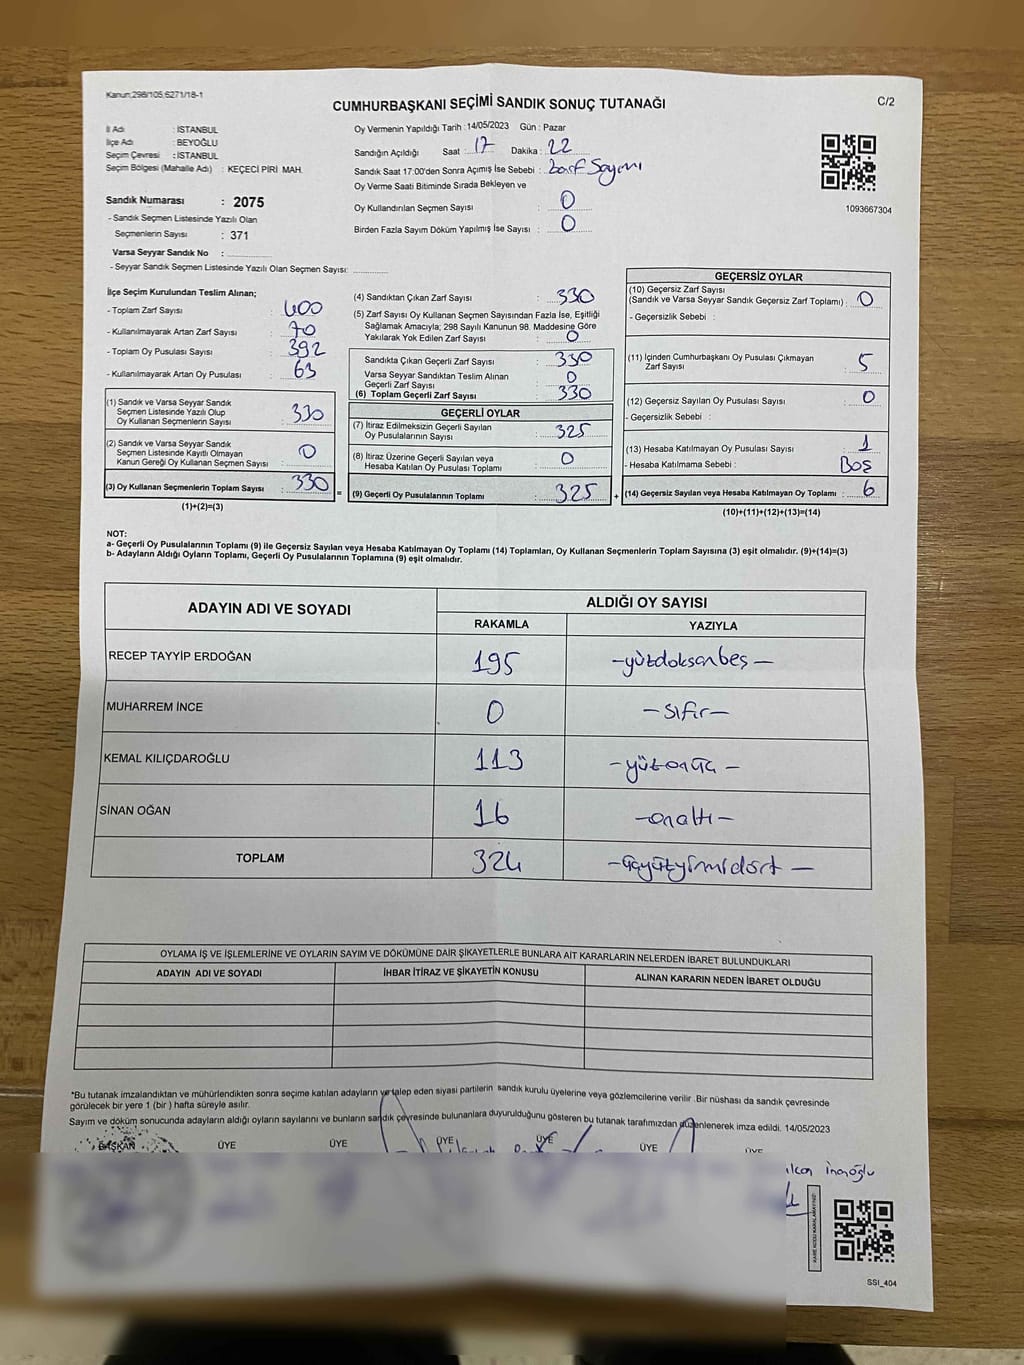 Kanun:298/105,6271/18-1
CUMHURBAŞKANI SEÇİMİ SANDIK SONUÇ TUTANAĞI
C/2
İl Adı : İSTANBUL
İlçe Adı : BEYOĞLU
Seçim Çevresi : İSTANBUL
Seçim Bölgesi (Mahalle Adı) : KEÇECİ PİRİ MAH.
Sandık Numarası : 2075
- Sandık Seçmen Listesinde Yazılı Olan
Seçmenlerin Sayısı : 371
Varsa Seyyar Sandık No :
- Seyyar Sandık Seçmen Listesinde Yazılı Olan Seçmen Sayısı:
Oy Vermenin Yapıldığı Tarih : 14/05/2023 Gün : Pazar
Sandığın Açıldığı Saat : 17 Dakika : 22
Sandık Saat 17:00'den Sonra Açımış İse Sebebi : Zarf Sayımı
Oy Verme Saati Bitiminde Sırada Bekleyen ve
Oy Kullandırılan Seçmen Sayısı : 0
Birden Fazla Sayım Döküm Yapılmış İse Sayısı : 0
1093667304
İlçe Seçim Kurulundan Teslim Alınan;
- Toplam Zarf Sayısı : 400
- Kullanılmayarak Artan Zarf Sayısı : 70
- Toplam Oy Pusulası Sayısı : 392
- Kullanılmayarak Artan Oy Pusulası : 63
(1) Sandık ve Varsa Seyyar Sandık
Seçmen Listesinde Yazılı Olup
Oy Kullanan Seçmenlerin Sayısı : 330
(2) Sandık ve Varsa Seyyar Sandık
Seçmen Listesinde Kayıtlı Olmayan
Kanun Gereği Oy Kullanan Seçmen Sayısı : 0
(3) Oy Kullanan Seçmenlerin Toplam Sayısı : 330 =
(1)+(2)=(3)
(4) Sandıktan Çıkan Zarf Sayısı : 330
(5) Zarf Sayısı Oy Kullanan Seçmen Sayısından Fazla İse, Eşitliği
Sağlamak Amacıyla; 298 Sayılı Kanunun 98. Maddesine Göre
Yakılarak Yok Edilen Zarf Sayısı : 0
Sandıkta Çıkan Geçerli Zarf Sayısı : 330
Varsa Seyyar Sandıktan Teslim Alınan
Geçerli Zarf Sayısı : 0
(6) Toplam Geçerli Zarf Sayısı : 330
GEÇERLİ OYLAR
(7) İtiraz Edilmeksizin Geçerli Sayılan
Oy Pusulalarının Sayısı : 325
(8) İtiraz Üzerine Geçerli Sayılan veya
Hesaba Katılan Oy Pusulası Toplamı : 0
(9) Geçerli Oy Pusulalarının Toplamı : 325 +
GEÇERSİZ OYLAR
(10) Geçersiz Zarf Sayısı
(Sandık ve Varsa Seyyar Sandık Geçersiz Zarf Toplamı) : 0
- Geçersizlik Sebebi :
(11) İçinden Cumhurbaşkanı Oy Pusulası Çıkmayan
Zarf Sayısı : 5
(12) Geçersiz Sayılan Oy Pusulası Sayısı : 0
- Geçersizlik Sebebi :
(13) Hesaba Katılmayan Oy Pusulası Sayısı : 1
- Hesaba Katılmama Sebebi : Boş
(14) Geçersiz Sayılan veya Hesaba Katılmayan Oy Toplamı : 6
(10)+(11)+(12)+(13)=(14)
NOT:
a- Geçerli Oy Pusulalarının Toplamı (9) ile Geçersiz Sayılan veya Hesaba Katılmayan Oy Toplamı (14) Toplamları, Oy Kullanan Seçmenlerin Toplam Sayısına (3) eşit olmalıdır. (9)+(14)=(3)
b- Adayların Aldığı Oyların Toplamı, Geçerli Oy Pusulalarının Toplamına (9) eşit olmalıdır.
ADAYIN ADI VE SOYADI ALDIĞI OY SAYISI
RAKAMLA YAZIYLA
RECEP TAYYİP ERDOĞAN 195 -yüzdoksanbeş-
MUHARREM İNCE 0 -sıfır-
KEMAL KILIÇDAROĞLU 113 -yüzonüç-
SİNAN OĞAN 16 -onaltı-
TOPLAM 324 -üçyüzyirmidört-
OYLAMA İŞ VE İŞLEMLERİNE VE OYLARIN SAYIM VE DÖKÜMÜNE DAİR ŞİKAYETLERLE BUNLARA AİT KARARLARIN NELERDEN İBARET BULUNDUKLARI
ADAYIN ADI VE SOYADI İHBAR İTİRAZ VE ŞİKAYETİN KONUSU ALINAN KARARIN NEDEN İBARET OLDUĞU
*Bu tutanak imzalandıktan ve mühürlendikten sonra seçime katılan adayların ve talep eden siyasi partilerin sandık kurulu üyelerine veya gözlemcilerine verilir .Bir nüshası da sandık çevresinde
görülecek bir yere 1 (bir ) hafta süreyle asılır.
Sayım ve döküm sonucunda adayların aldığı oyların sayılarını ve bunların sandık çevresinde bulunanlara duyurulduğunu gösteren bu tutanak tarafımızdan düzenlenerek imza edildi. 14/05/2023
BAŞKAN ÜYE ÜYE ÜYE ÜYE ÜYE ÜYE
SSI_404